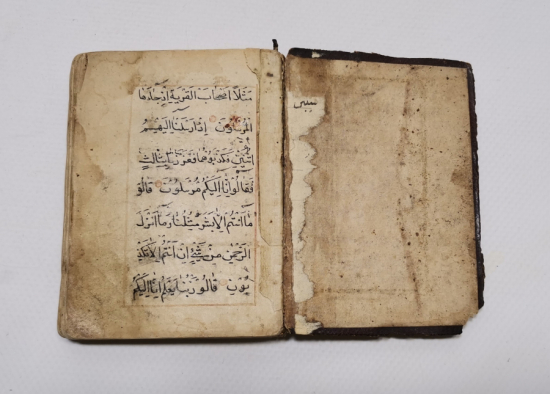 مثلا اصحاب القرية اذ جاءها
المرسلون اذ ارسلنا اليهم
اثنين فكذبوهما فعززنا بثالث
فقالوا انا اليكم مرسلون قالوا
ما انتم الا بشر مثلنا وما انزل
الرحمن من شئ ان انتم الا تكذ
بون قالوا ربنا يعلم انا اليكم